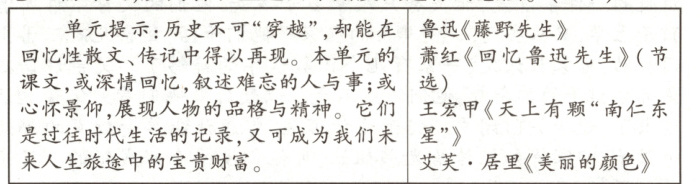 单元提示:历史不可“穿越”,却能在
回忆性散文、传记中得以再现。本单元的
课文,或深情回忆,叙述难忘的人与事;或
心怀景仰,展现人物的品格与精神。它们
是过往时代生活的记录,又可成为我们未
来人生旅途中的宝贵财富。
鲁迅《藤野先生》
萧红《回忆鲁迅先生》(节
选)
王宏甲《天上有颗“南仁东
星”》
艾芙·居里《美丽的颜色》